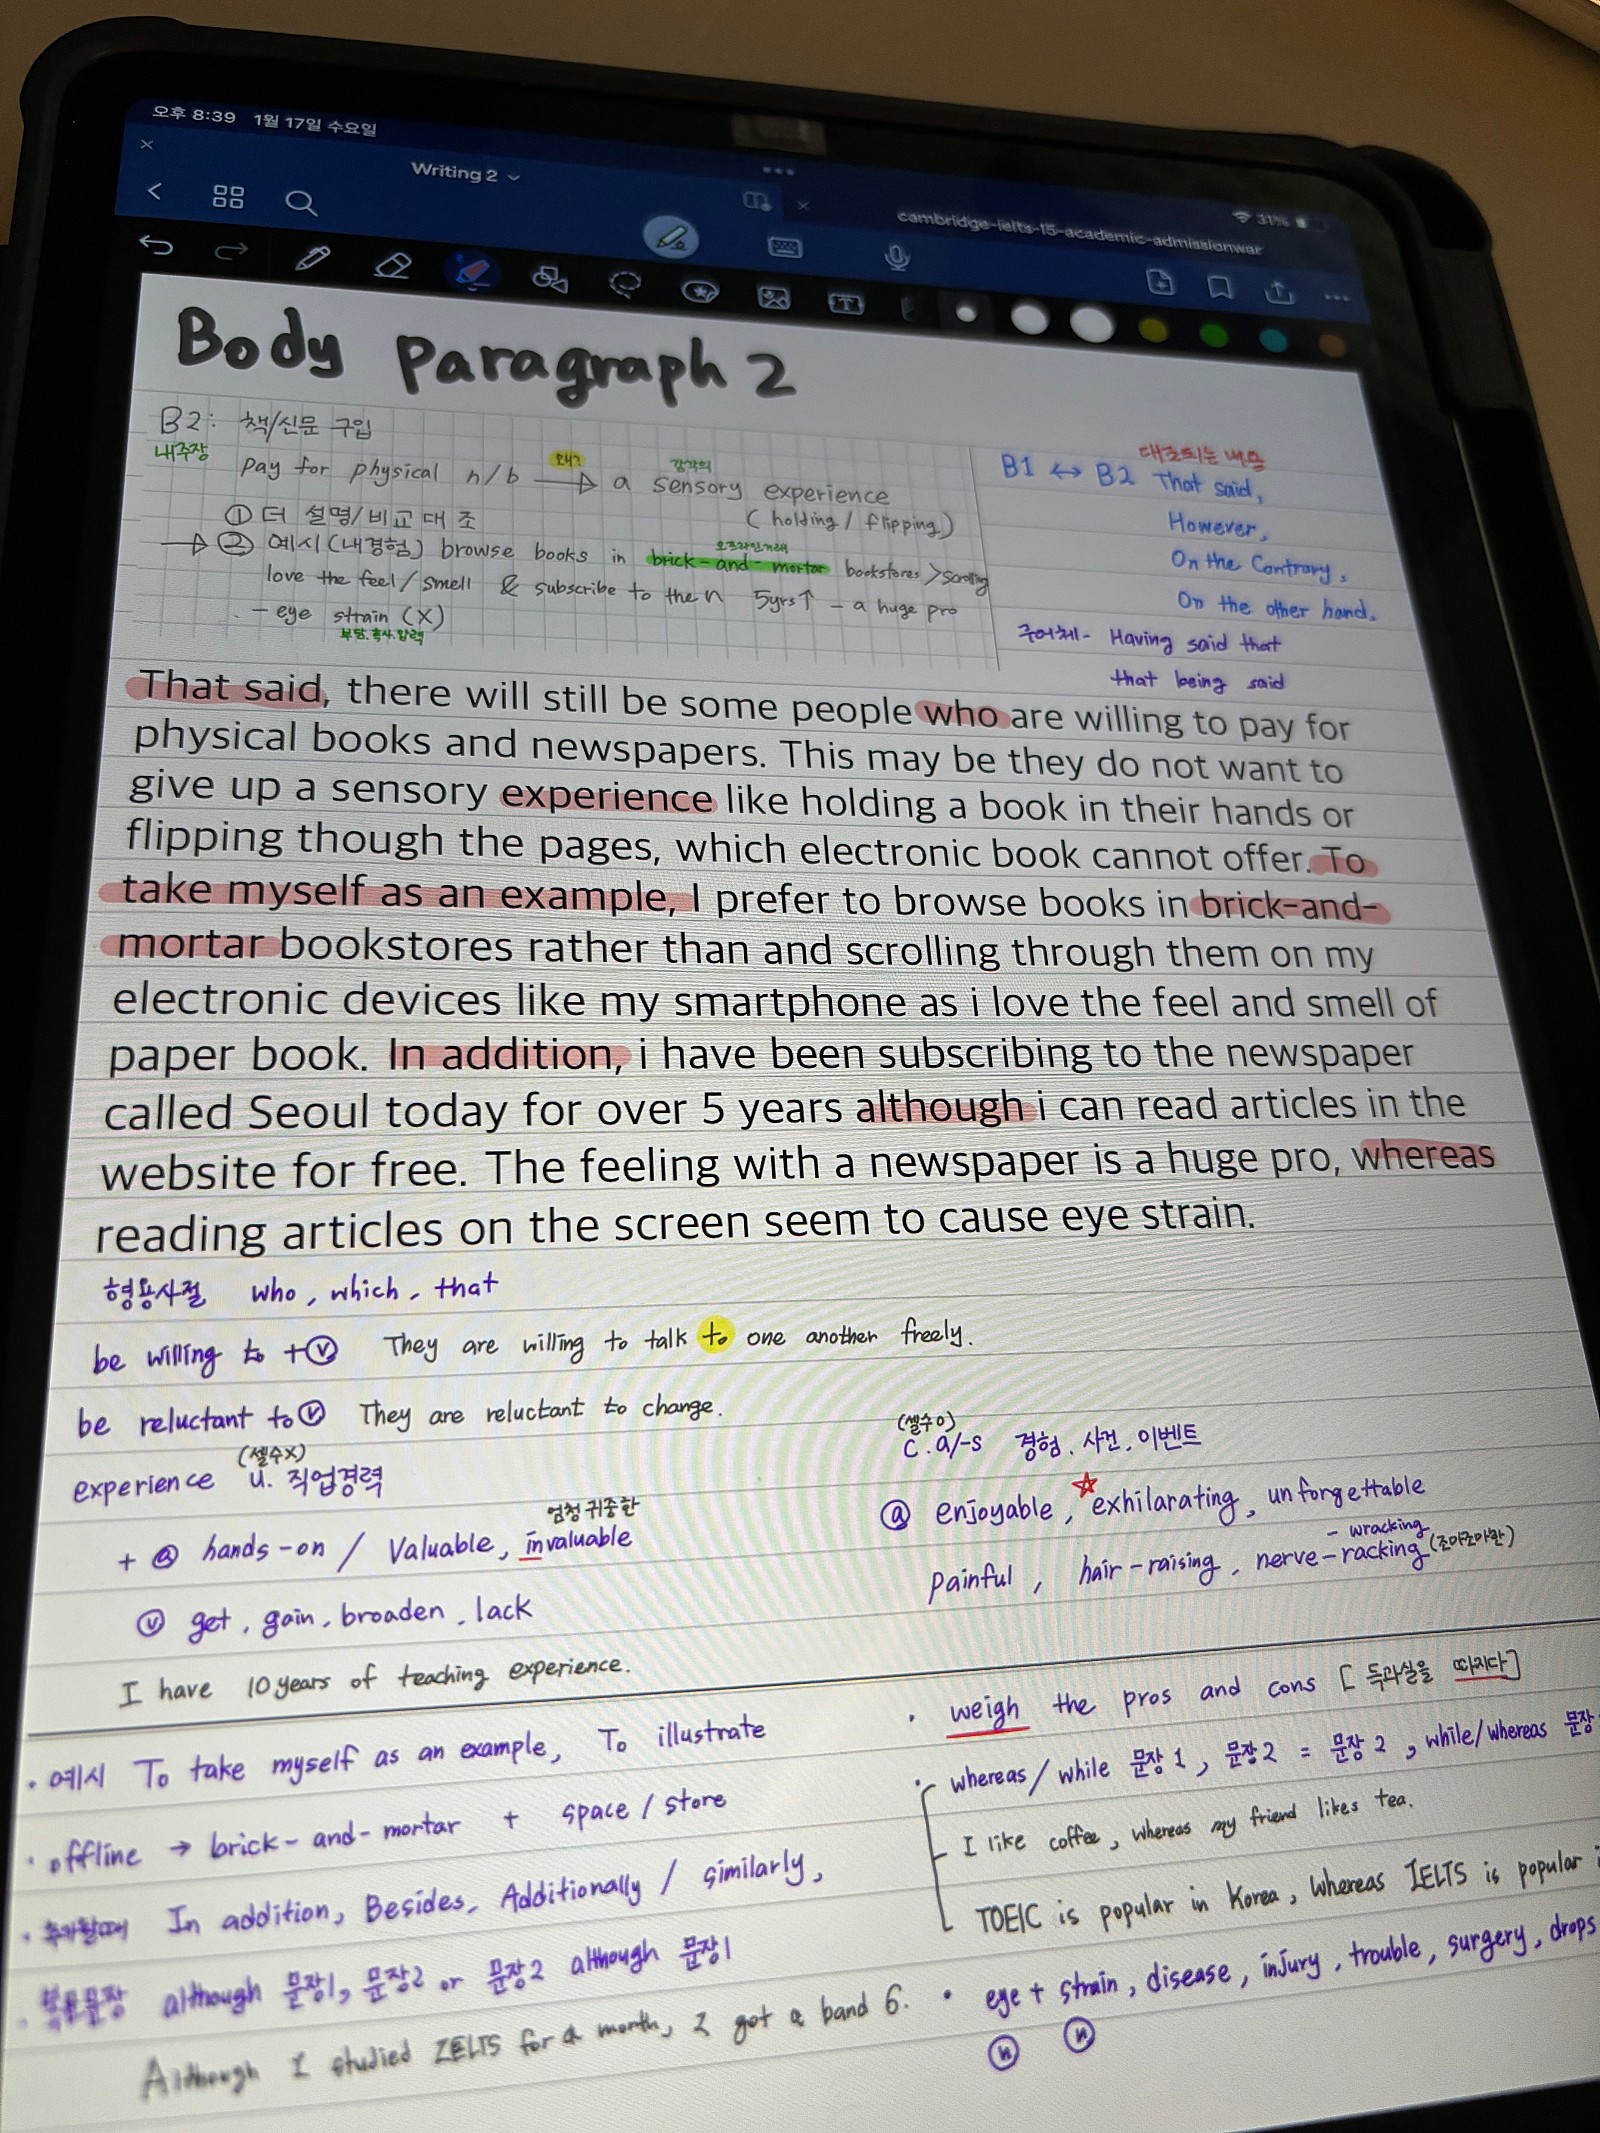 오후 8:39 1월 17일 수요일
31%
Writing 2
cambridge-ielts-15-academic-admissionwar
Body Paragraph 2
B2: 책/신문 구입
내주장
pay for physical n/b 왜? → a sensory experience
감각의
(holding / flipping)
① 더 설명/비교대조
→ ② 예시(내경험) browse books in brick-and-mortar bookstores > scrolling
오프라인거래
love the feel/smell & subscribe to the n 5yrs↑ - a huge pro
- eye strain (X)
부담.혹사.압력
대조되는 내용
B1 ↔ B2 That said,
However,
On the Contrary,
On the other hand,
구어체- Having said that
that being said
That said, there will still be some people who are willing to pay for
physical books and newspapers. This may be they do not want to
give up a sensory experience like holding a book in their hands or
flipping though the pages, which electronic book cannot offer. To
take myself as an example, I prefer to browse books in brick-and-
mortar bookstores rather than and scrolling through them on my
electronic devices like my smartphone as i love the feel and smell of
paper book. In addition, i have been subscribing to the newspaper
called Seoul today for over 5 years although i can read articles in the
website for free. The feeling with a newspaper is a huge pro, whereas
reading articles on the screen seem to cause eye strain.
형용사절 who, which, that
be willing to +ⓥ They are willing to talk to one another freely.
be reluctant to ⓥ They are reluctant to change.
(셀수X)
experience U. 직업경력
(셀수O)
C. a/-s 경험. 사건. 이벤트
엄청 귀중한
+ ⓐ hands-on / Valuable, invaluable
ⓥ get, gain, broaden, lack
I have 10 years of teaching experience.
ⓐ enjoyable, ☆exhilarating, unforgettable
- wracking
painful, hair-raising, nerve-racking (조마조마한)
· 예시 To take myself as an example, To illustrate
· offline → brick-and-mortar + space / store
· 추가할때 In addition, Besides, Additionally / similarly,
· 복문문장 although 문장1, 문장2 or 문장2 although 문장1
Although I studied IELTS for a month, I got a band 6.
· weigh the pros and cons [독과실을 따지다]
· whereas/while 문장1, 문장2 = 문장2, while/whereas 문장
I like coffee, whereas my friend likes tea.
TOEIC is popular in Korea, Whereas IELTS is popular
· eye + strain, disease, injury, trouble, surgery, drops
ⓝ ⓝ